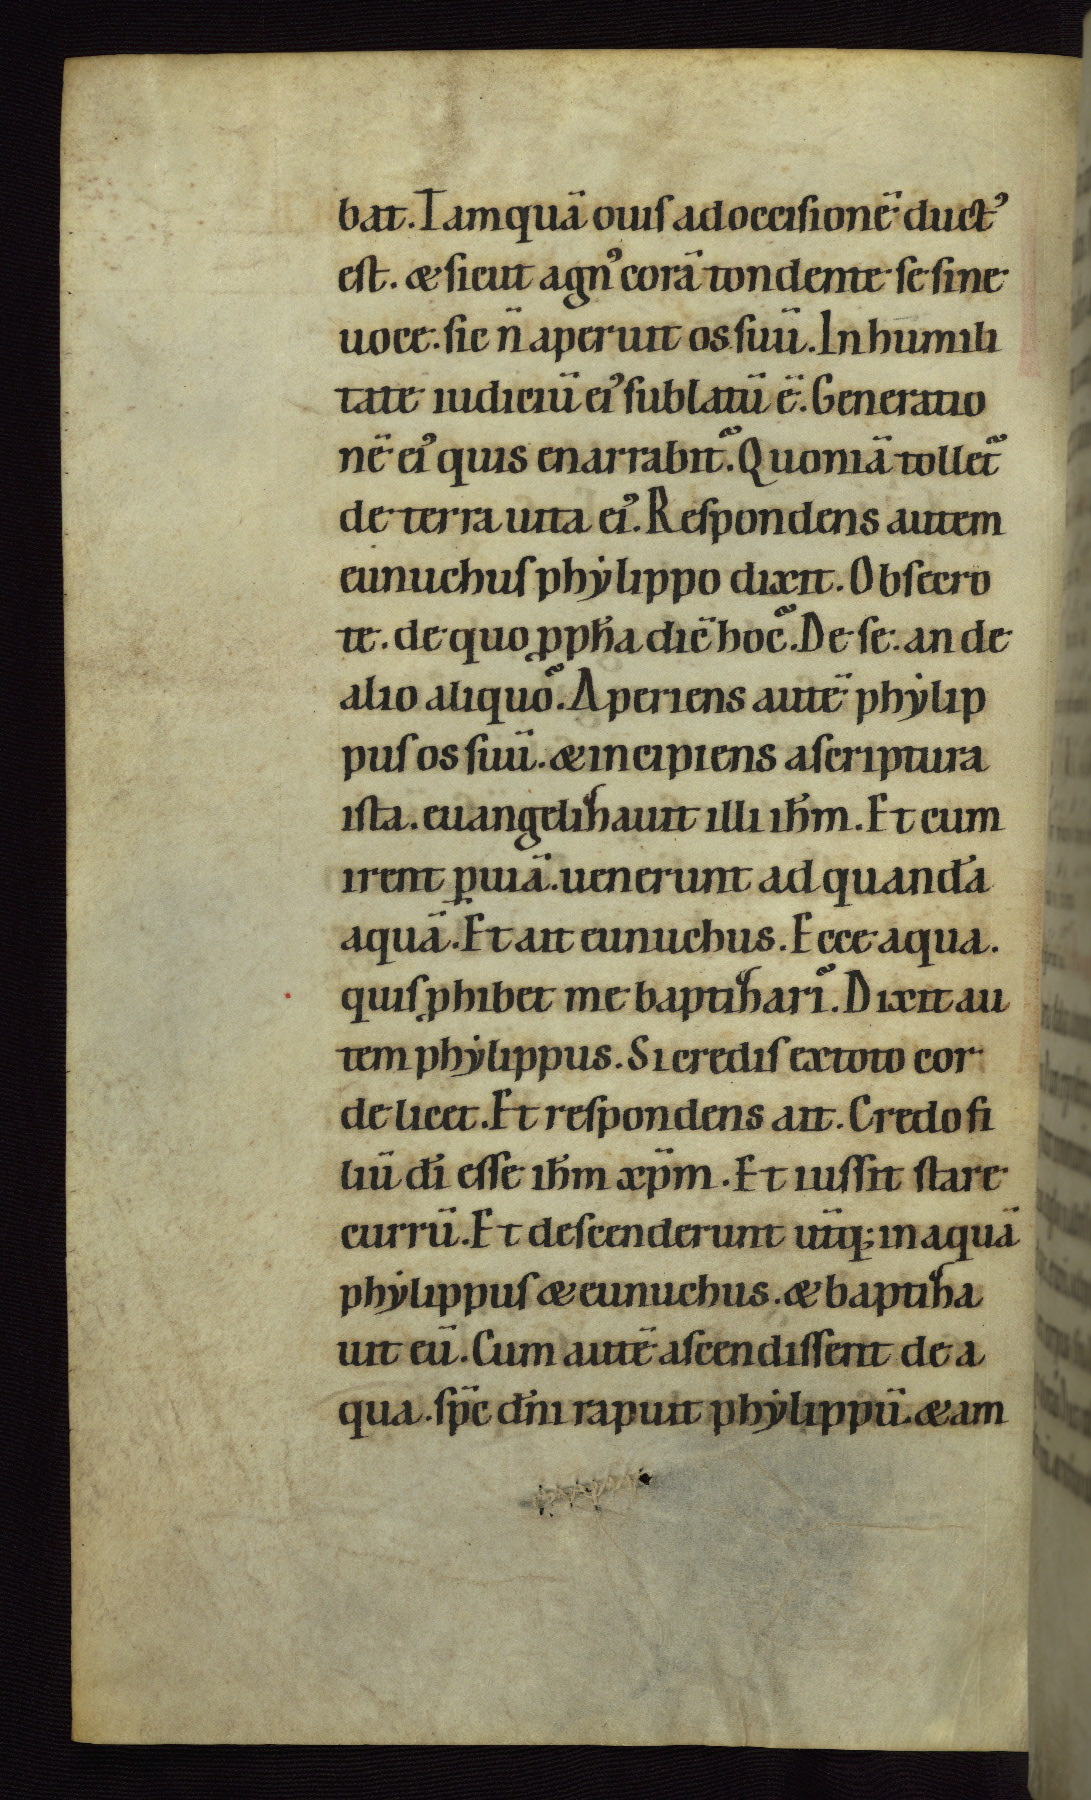 bat. Tamquā ouis ad occisionē duct᾿
est. & sicut agn᾿ corā tondente se sine
uoce. sic n̄ aperuit os suū. In humili
tate iudiciū ei᾿ sublatū ē. Generatio
nē ei᾿ quis enarrabit. Quoniā tollet᷑
de terra uita ei᾿. Respondens autem
eunuchus phẏlippo dixit. Obsecro
te. de quo ꝓpħa dic̄ hoc. De se. an de
alio aliquo. Aperiens autē phẏlip
pus os suū. & incipiens a scriptura
ista. euangelizauit illi iħm. Et cum
irent ꝑ uiā. uenerunt ad quandā
aquā. Et ait eunuchus. Ecce aqua.
quis ꝓhibet me baptizari. Dixit au
tem phẏlippus. Si credis ex toto cor
de licet. Et respondens ait. Credo fi
liū dī esse iħm xp̄m. Et iussit stare
currū. Et descenderunt ut̄q; in aquā
phẏlippus & eunuchus. & baptiza
uit eū. Cum autē ascendissent de a
qua. sp̄c dn̄i rapuit phẏlippū. & am